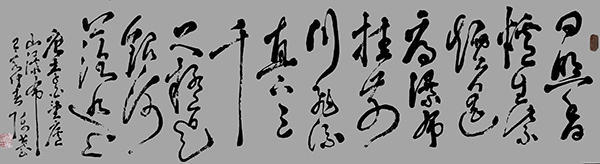 日照香
爐生紫
煙遥
看瀑布
挂前
川飛流
直下三
千
尺疑是
銀河
落九天
唐李白望廬
山瀑布